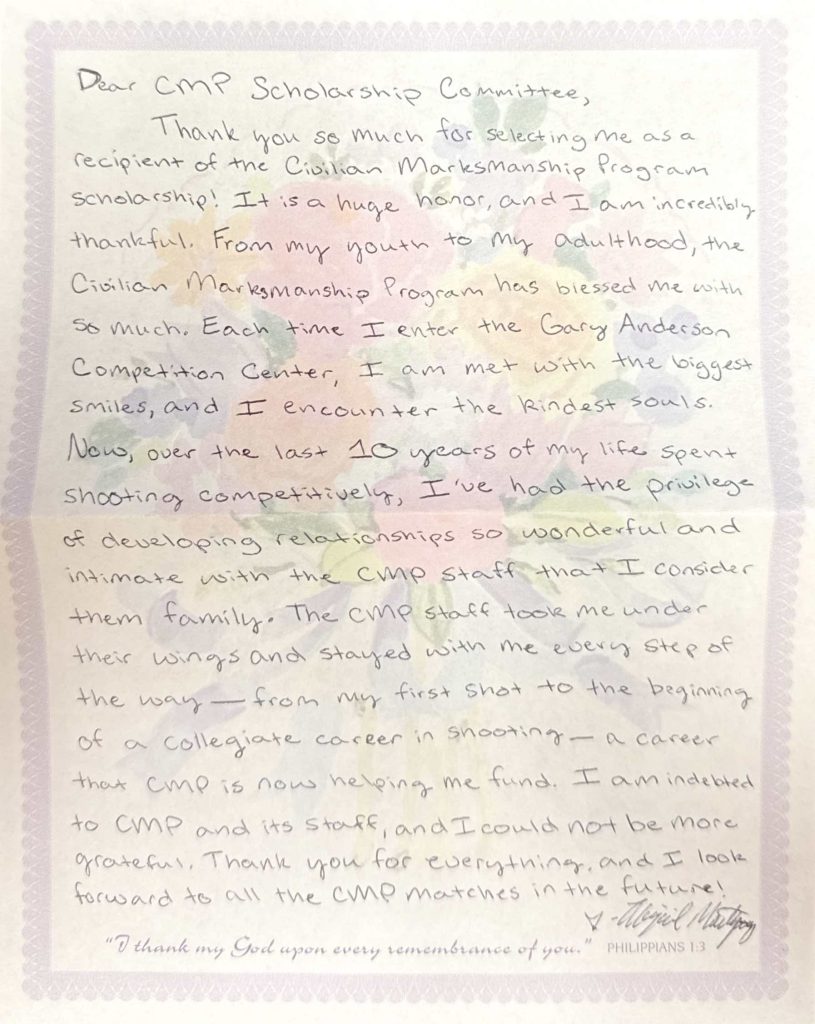 Dear CMP Scholarship Committee,
Thank you so much for selecting me as a
recipient of the Civilian Marksmanship Program
scholarship! It is a huge honor, and I am incredibly
thankful. From my youth to my adulthood, the
Civilian Marksmanship Program has blessed me with
so much. Each time I enter the Gary Anderson
Competition Center, I am met with the biggest
smiles, and I encounter the kindest souls.
Now, over the last 10 years of my life spent
shooting competitively, I've had the privilege
of developing relationships so wonderful and
intimate with the CMP staff that I consider
them family. The CMP staff took me under
their wings and stayed with me every step of
the way — from my first shot to the beginning
of a collegiate career in shooting — a career
that CMP is now helping me fund. I am indebted
to CMP and its staff, and I could not be more
grateful. Thank you for everything, and I look
forward to all the CMP matches in the future!
- Abigail
"I thank my God upon every remembrance of you." PHILIPPIANS 1:3